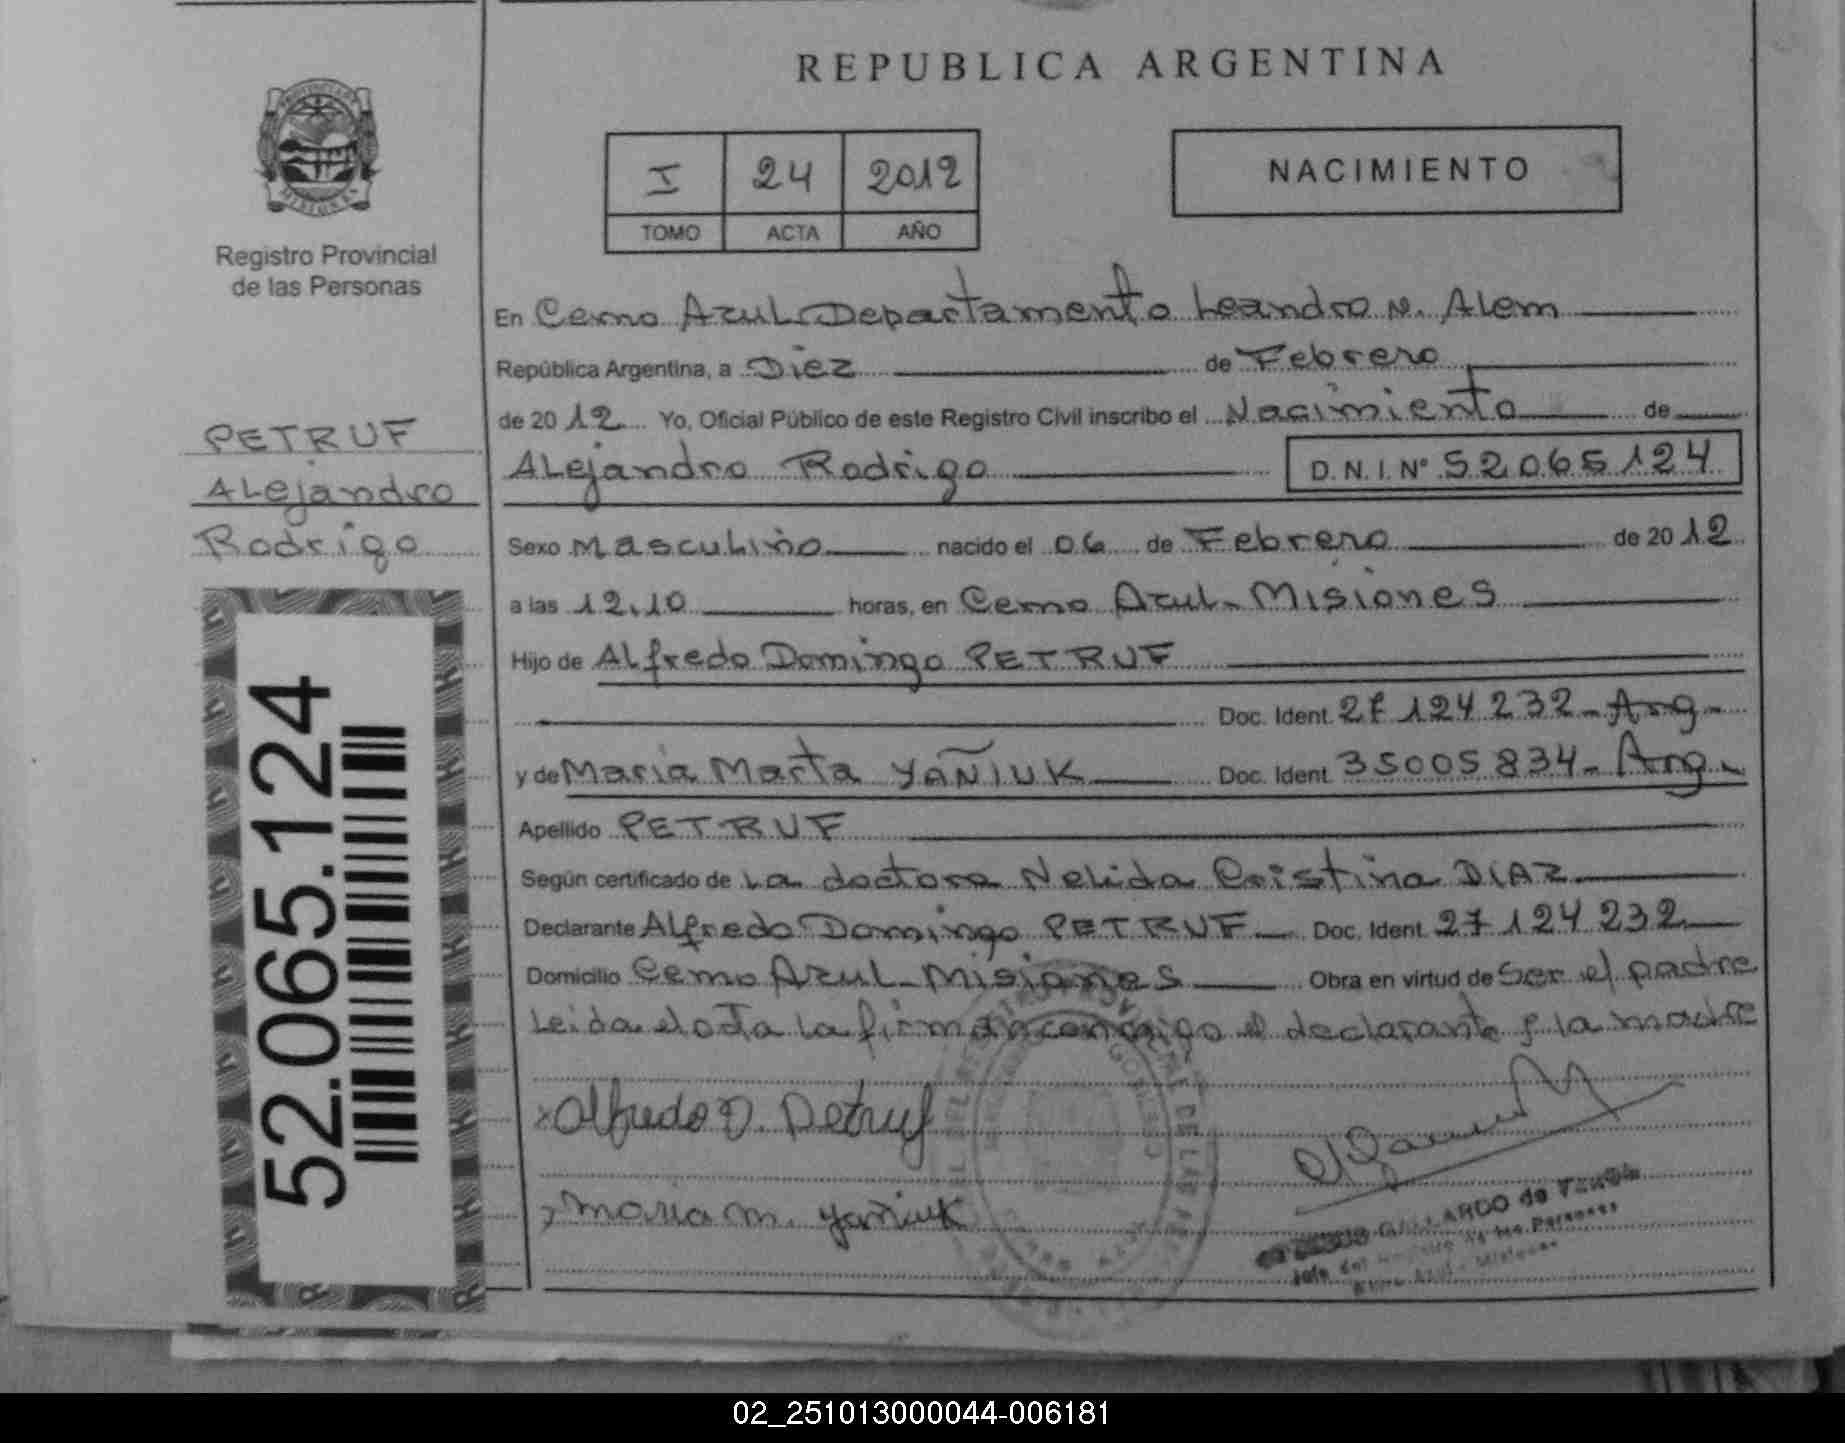 REPUBLICA ARGENTINA
I 24 2012
TOMO ACTA AÑO
NACIMIENTO
Registro Provincial
de las Personas
PETRUF
Alejandro
Rodrigo
52.065.124
En Cerro Azul Departamento Leandro N. Alem
República Argentina, a Diez de Febrero
de 2012 Yo, Oficial Público de este Registro Civil inscribo el Nacimiento de
Alejandro Rodrigo D.N.I. Nº 52065124
Sexo Masculino nacido el 06 de Febrero de 2012
a las 12.10 horas, en Cerro Azul - Misiones
Hijo de Alfredo Domingo PETRUF
Doc. Ident. 27 124 232 - Arg -
y de Maria Marta YAÑIUK Doc. Ident. 35005834 - Arg -
Apellido PETRUF
Según certificado de la doctora Nelida Cristina DIAZ
Declarante Alfredo Domingo PETRUF Doc. Ident. 27 124 232
Domicilio Cerro Azul - Misiones Obra en virtud de Ser el padre
Leida el acta la firman conmigo el declarante y la madre
Alfredo D. Petruf
Maria M. Yañiuk
GALLARDO de
Jefe del Registro de las Personas
Cerro Azul - Misiones
02_251013000044-006181